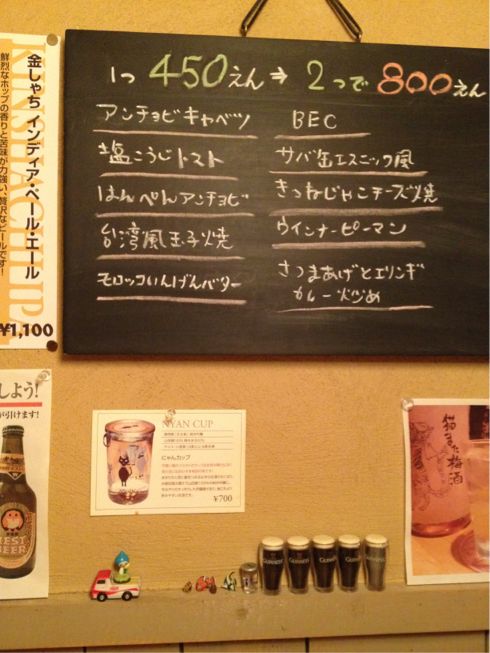 1つ 450えん⇒ 2つで 800えん
アンチョビキャベツ
塩こうじトマト
はんぺんアンチョビ
台湾風玉子焼
モロッコいんげんバター
BEC
サバ缶エスニック風
きつねじゃこチーズ焼
ウインナーピーマン
さつまあげとエリンギ
カレー炒め
KINSHACHI IPA
金しゃち インディア・ペール・エール
鮮烈なホップの香りと苦味が力強い、贅沢なビールです!
¥1,100
しよう!
が引けます!
EST
BEER
NYAN CUP
にゃんカップ
¥700
猫また梅酒
GUINNESS
GUINNESS
GUINNESS
GUINNESS
GUINNESS